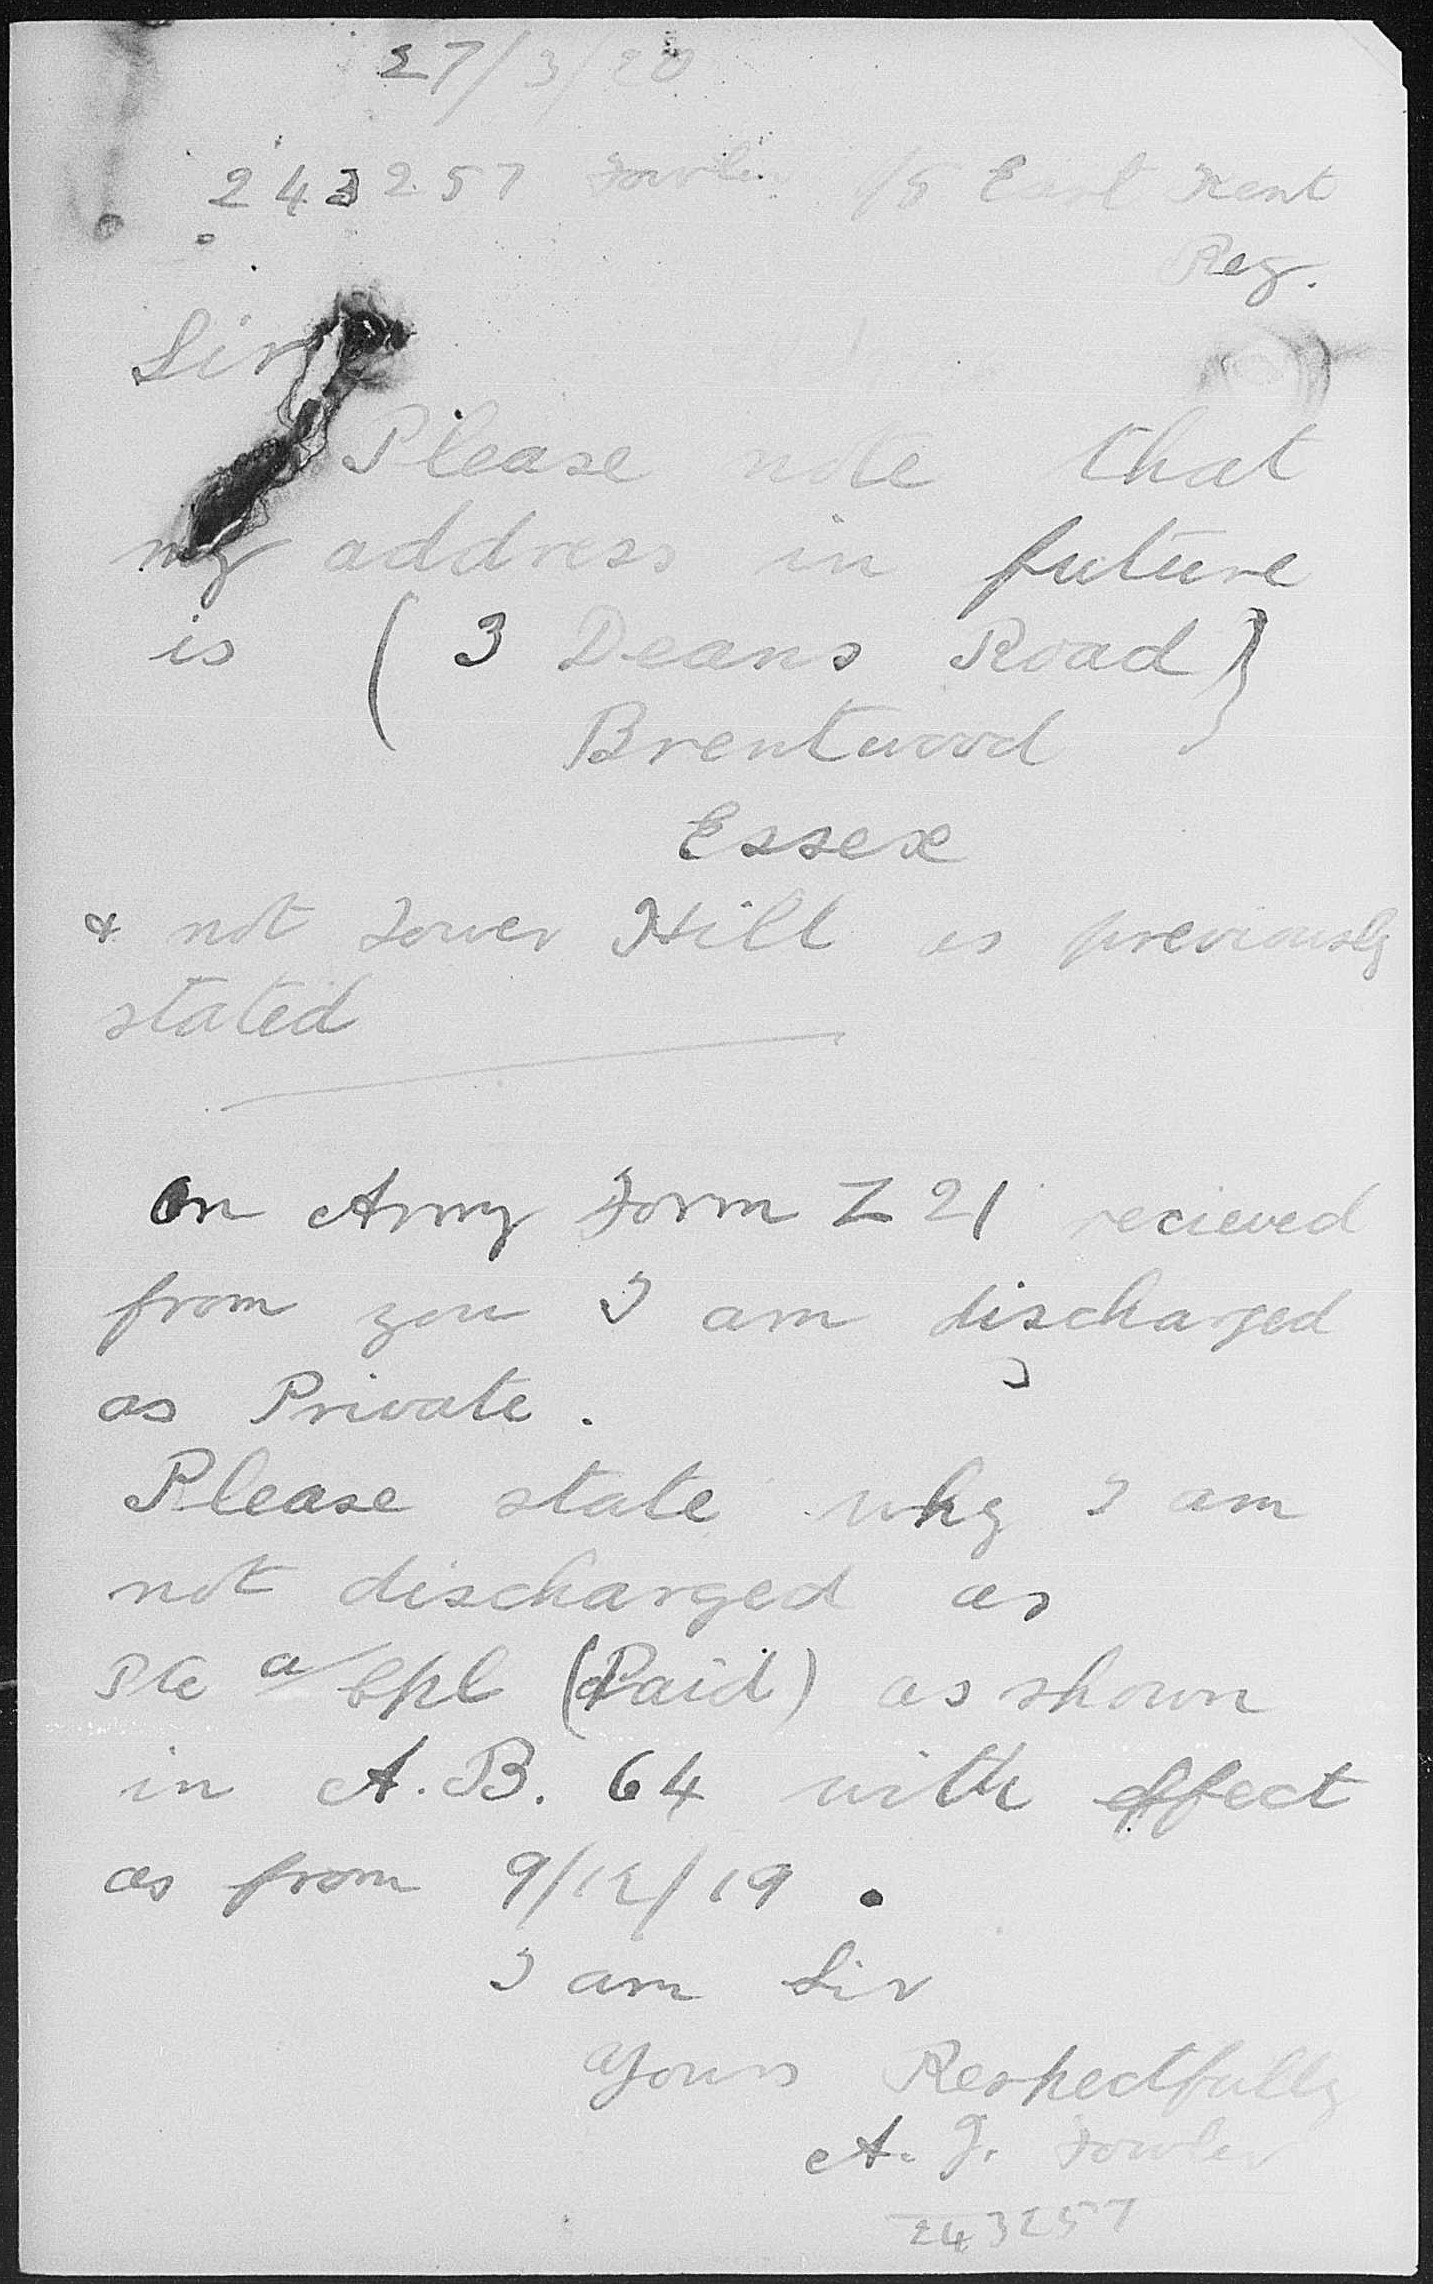 27/3/20
243257 Fowler 1/5 East Kent
Reg.
Sir
Please note that
my address in future
is ( 3 Deans Road )
Brentwood
Essex
& not Tower Hill as previously
stated
On Army Form Z 21 recieved
from you I am discharged
as Private.
Please state why I am
not discharged as
Pte a/Cpl (Paid) as shown
in A.B. 64 with effect
as from 9/12/19.
I am Sir
Yours Respectfully
A. J. Fowler
243257